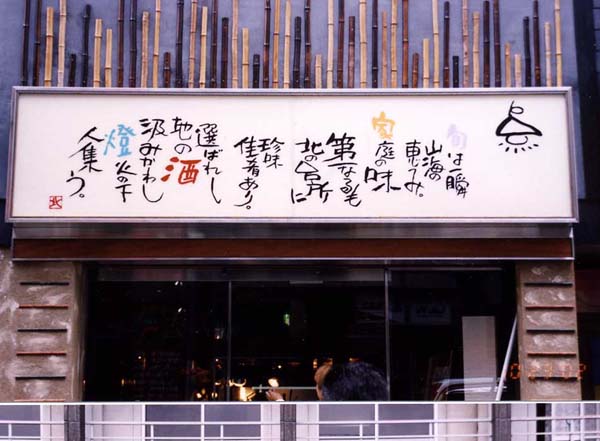 旬は一瞬
山海の
恵み。
家庭の味
第一なるも
北の台所に
珍味
佳肴あり。
選ばれし
地の酒
汲みかわし
燈火の下
人集う。